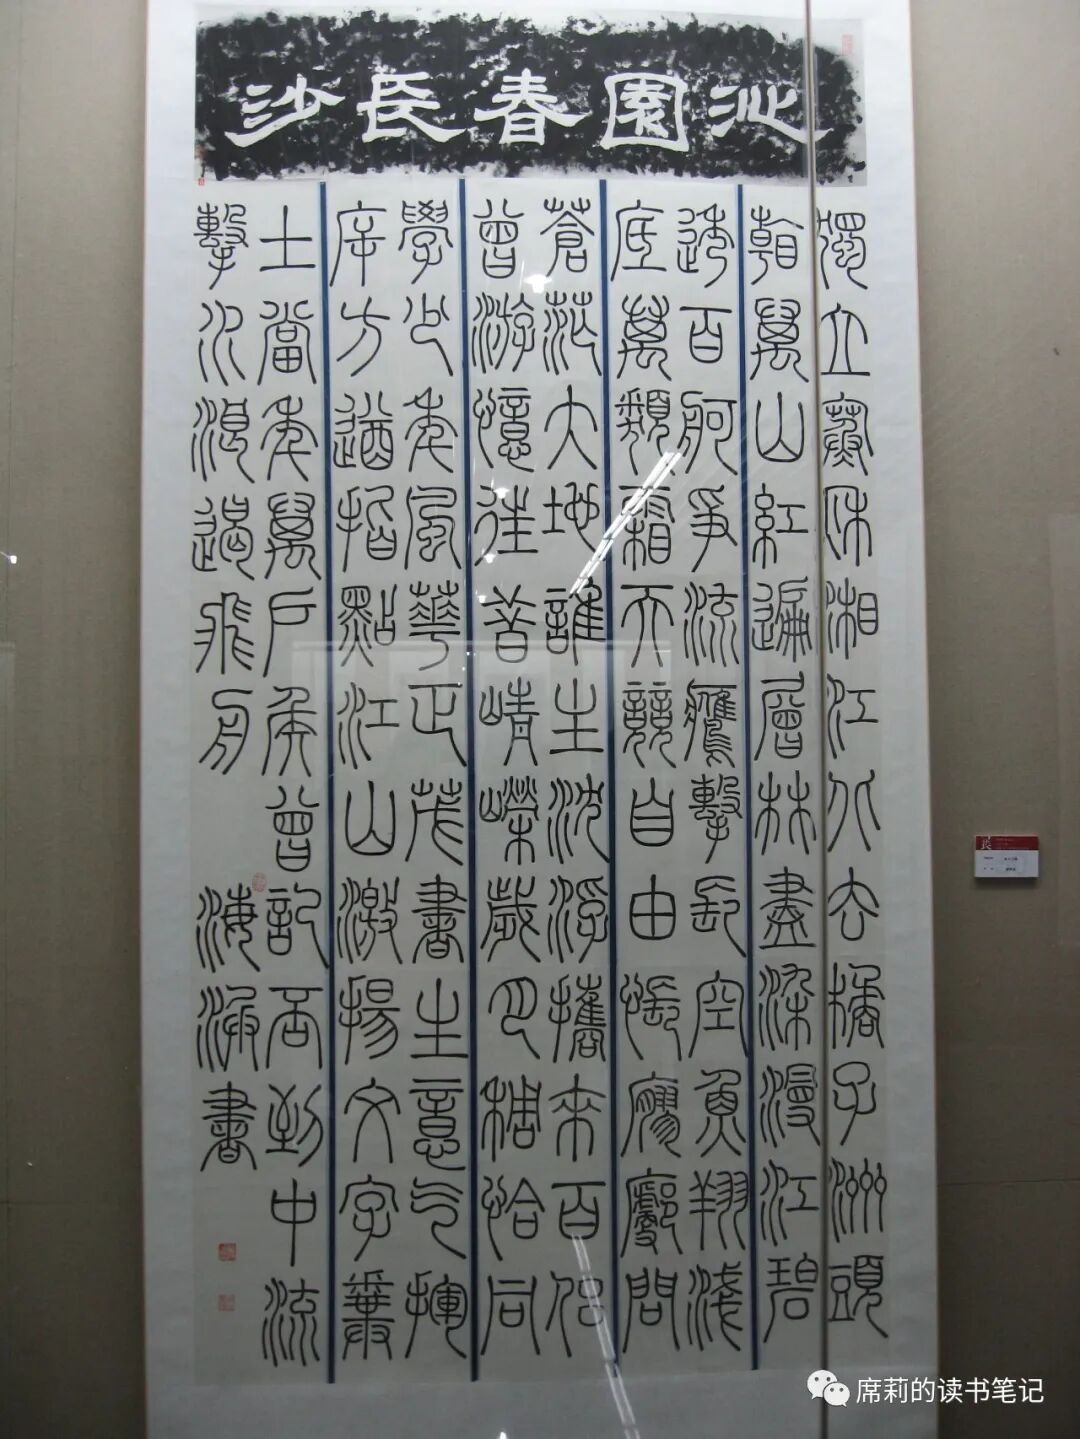 沁園春長沙
獨立寒秋湘江北去橘子洲頭
看萬山紅遍層林盡染漫江碧
透百舸爭流鷹擊長空魚翔淺
底萬類霜天競自由悵寥廓問
蒼茫大地誰主沈浮攜來百侶
曾游憶往昔崢嶸歲月稠恰同
學少年風華正茂書生意气揮
斥方遒指點江山激揚文字糞
土當年萬戶侯曾記否到中流
擊水浪遏飛舟 海 書
席莉的读书笔记